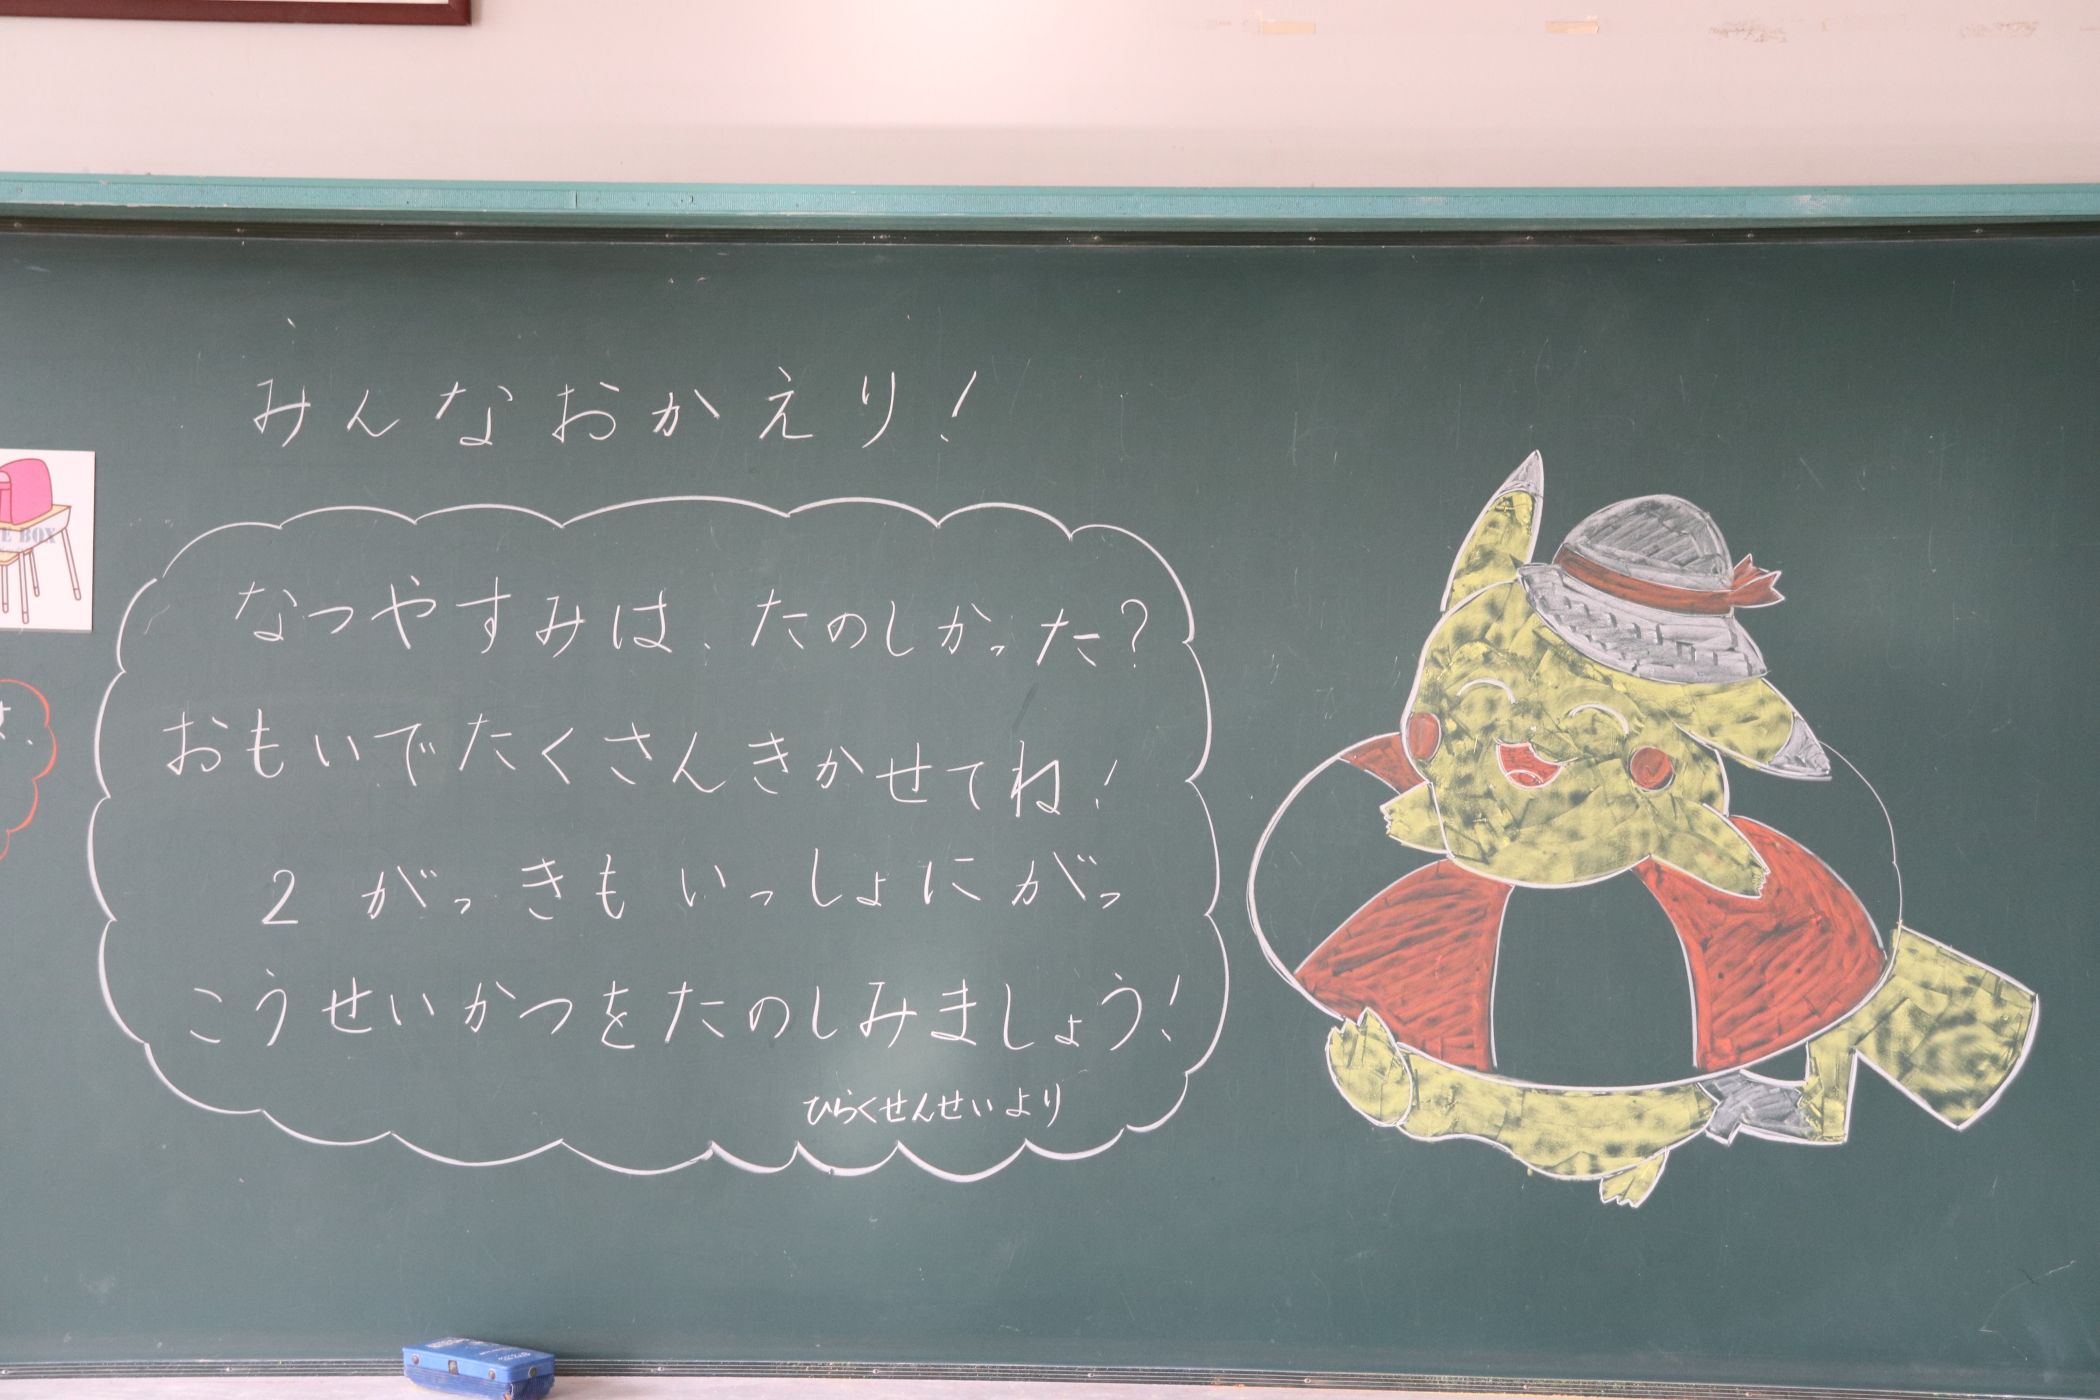 みんなおかえり!
なつやすみは、たのしかった?
おもいでたくさんきかせてね!
2がっきもいっしょにがっ
こうせいかつをたのしみましょう!
ひらくせんせいより